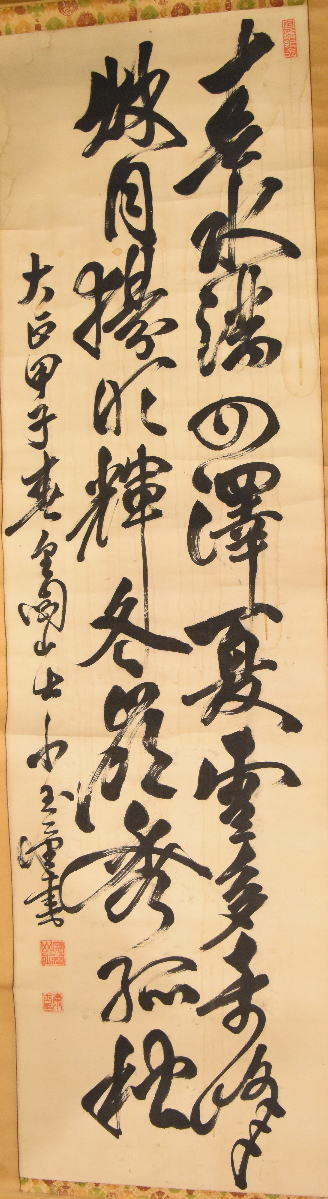 春水満四澤夏雲多奇峰
秋月揚明輝冬嶺秀孤松
大正甲子春 山 玉 書